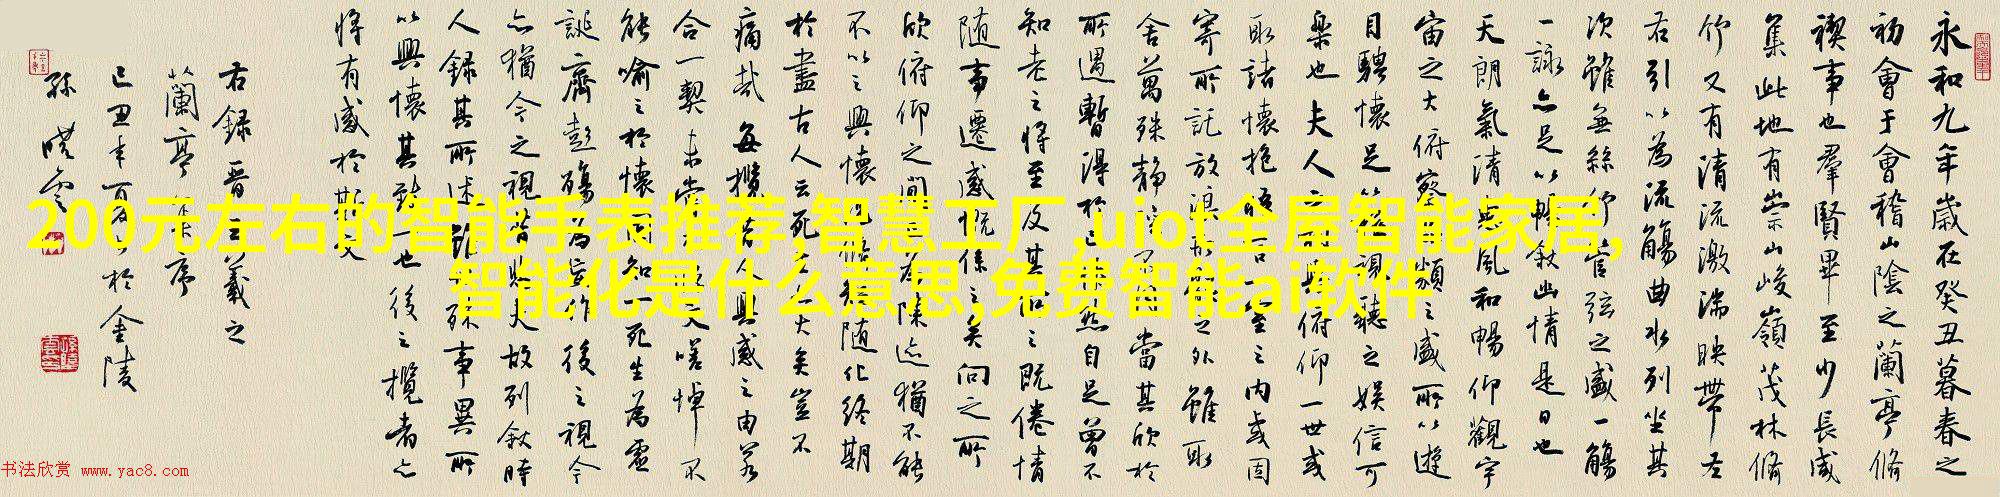 永和九年歲在癸丑暮春之
初會于會稽山陰之蘭亭脩
禊事也羣賢畢至少長咸
集此地有崇山峻嶺茂林脩
竹又有清流激湍映帶左
右引以為流觴曲水列坐其
次雖無絲竹管弦之盛一觴
一詠亦足以暢敘幽情是日也
天朗氣清惠風和暢仰觀宇
宙之大俯察品類之盛所以遊
目騁懷足以極視聽之娛信可
樂也夫人之相與俯仰一世或
取諸懷抱悟言一室之內或因
寄所託放浪形骸之外雖取
舍萬殊靜躁不同當其欣於
所遇暫得於己快然自足曾不
知老之將至及其所之既倦情
隨事遷感慨係之矣向之所
欣俯仰之間為陳迹猶不能
不以之興懷況脩短隨化終期
於盡古人云死生亦大矣豈不
痛哉每攬昔人興感之由若
合一契未嘗不臨文嗟悼不
能喻之於懷固知一死生為虛
誕齊彭殤為妄作後之視今
亦猶今之視昔悲夫故列敘時
人錄其所述雖世殊事異所
以興懷其致一也後之攬者亦
將有感於斯文
右錄晉王羲之
蘭亭集序
己丑年百花於金陵
孫曉雲
200元左右的智能手表推荐,智慧工厂,uiot全屋智能家居,
智能化是什么意思,免费智能ai软件
书法欣赏 www.yac8.com